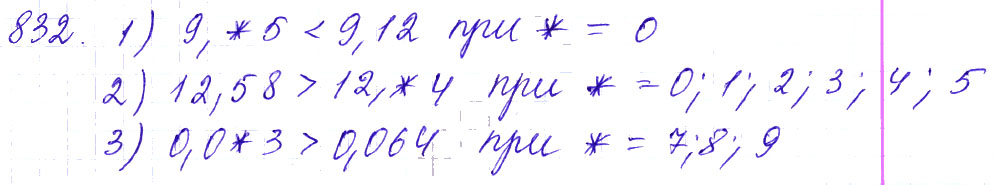 832. 1) 9,*5 < 9,12 при * = 0
2) 12,58 > 12,*4 при * = 0; 1; 2; 3; 4; 5
3) 0,0*3 > 0,064 при * = 7; 8; 9